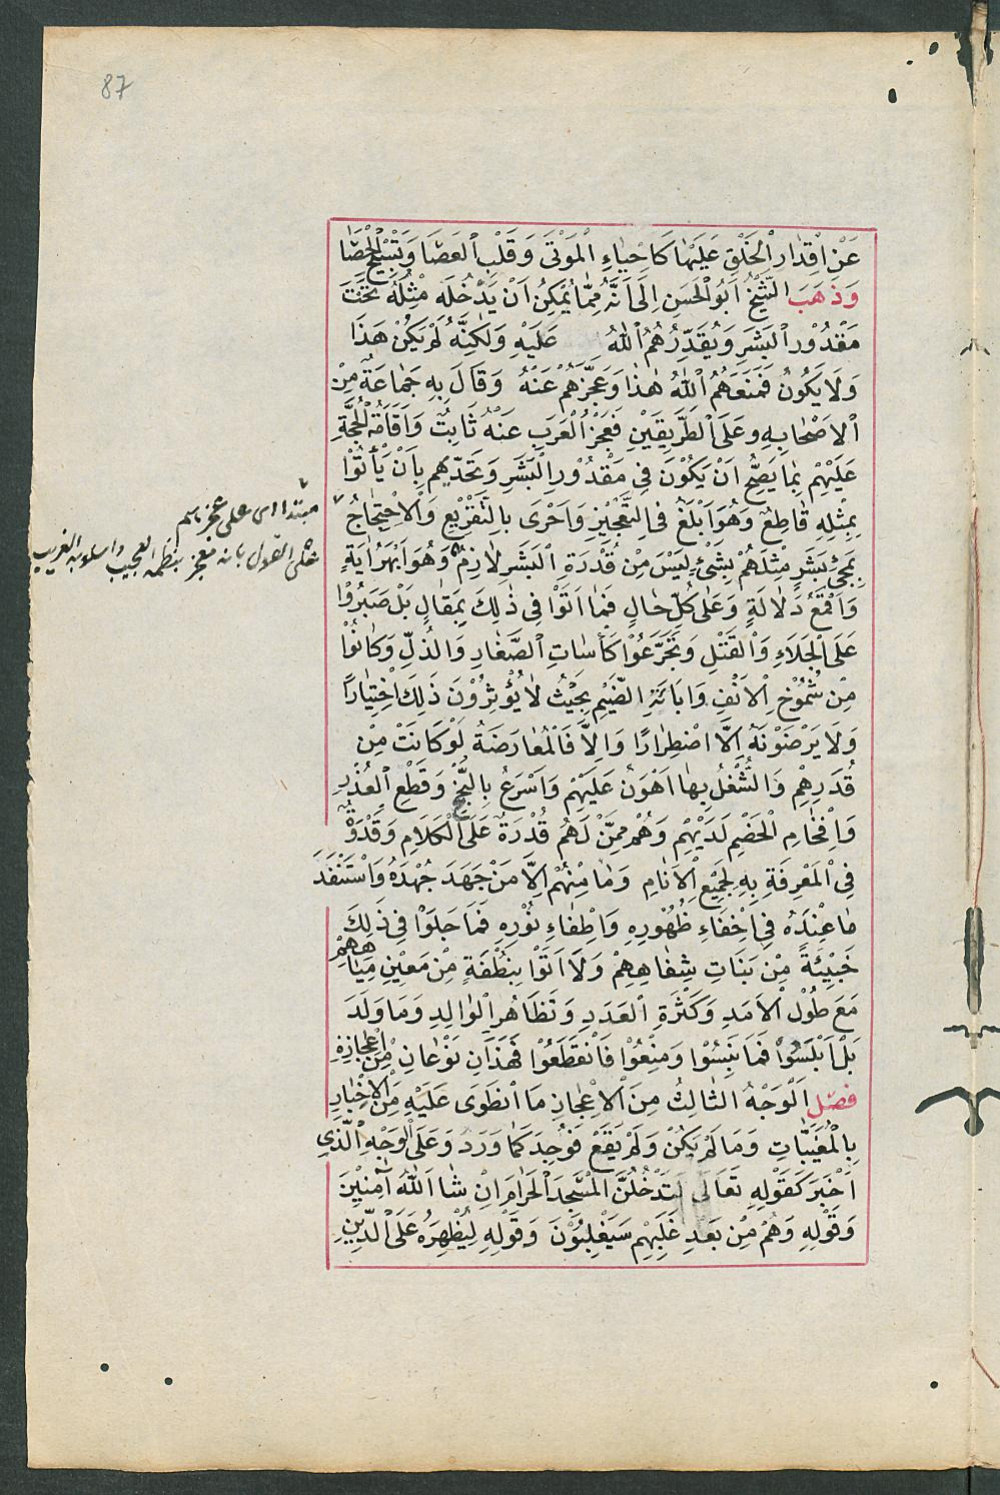 87
عَنْ اِقْدَارِ الْخَلْقِ عَلَيْهَا كَاحْيَاءِ الْمَوْتَى وَقَلْبِ الْعَصَا وَتَسْبِيحِ الْحَصَا
وَذَهَبَ الشَّيْخُ اَبُو الْحَسَنِ اِلَى اَنَّهُ مِمَّا يُمْكِنُ اَنْ يَدْخُلَ مِثْلُهُ تَحْتَ
مَقْدُوْرِ الْبَشَرِ وَيُقَدِّرُهُمُ اللّٰهُ عَلَيْهِ وَلَكِنَّهُ لَمْ يَكُنْ هَذَا
وَلَا يَكُونُ فَمَنَعَهُمُ اللّٰهُ هٰذَا وَعَجَّزَهُمْ عَنْهُ وَقَالَ بِهِ جَمَاعَةٌ مِنْ
الْاَصْحَابِهِ وعَلَى الطَّرِيقَيْنِ فَعَجْزُ الْعَرَبِ عَنْهُ ثَابِتٌ وَاِقَامَةُ الْحُجَّةِ
عَلَيْهِمْ بِمَا يَصِحُّ اَنْ يَكُوْنَ فِى مَقْدُوْرِ الْبَشَرِ وَتَحَدِّيهِم بِاَنْ يَأْتُوْا
بِمِثْلِهِ قَاطِعٌ وَهُوَ اَبْلَغُ فِى التَّعْجِيْزِ وَاَحْرَى بِالتَّقْرِيْعِ وَالْاِحْتِجَاجُ
بِمَجِئِ بَشَرٍ مِثْلَهُمْ بِشَىْءٍ لَيْسَ مِنْ قُدْرَةِ الْبَشَرِ لَازِمٌ وَهُوَ اَبْهَرُ اٰيَةٍ
وَاَقْمَعُ دَلَالَةٍ وَعَلَى كُلِّ حَالٍ فَمَا اَتَوْا فِى ذٰلِكَ بِمَقَالٍ بَلْ صَبَرُوْا
عَلَى الْجَلَاءِ وَالْقَتْلِ وَتَجَرَّعُوْا كَأْسَاتِ الصَّغَارِ وَالذُلِّ وَكَانُوْا
مِنْ شُمُوْخِ الْاَنْفِ وَاِبَائَةِ الضَّيْمِ بِحَيْثُ لَا يُؤْثِرُوْنَ ذَلِكَ اخْتِيَارًا
وَلَا يَرْضَوْنَهُ اِلَّا اضْطِرَارًا وَاِلاَّ فَالْمُعَارَضَةُ لَوْ كَانَتْ مِنْ
قُدَرِهِمْ وَالشُّغْلُ بِهَا اَهْوَنُ عَلَيْهِمْ وَاَسْرَعُ بِالنُّجْحِ وَقَطْعِ الْعُذْرِ
وَاِفْحَامِ الْخَصْمِ لَدَيْهِمْ وَهُمْ مِمَّنْ لَهُمْ قُدْرَةٌ عَلَى الْكَلَامِ وَقُدْوَةٌ
فِى الْمَعْرِفَةِ بِهِ لِجَمِيْعِ الْاَنَامِ وَمَا مِنْهُمْ اِلَّا مَنْ جَهَدَ جُهْدَهُ وَاسْتَنْفَدَ
مَا عِنْدَهُ فِى اِخْفَاءِ ظُهُوْرِهِ وَاِطْفَاءِ نُوْرِهِ فَمَا جَلَوْا فِى ذَلِكَ
خَبِيْئَةً مِنْ بَنَاتِ شِفَاهِهِمْ وَلَا اَتَوْا بِنُطْفَةٍ مِنْ مَعِيْنِ مِيَاهِهِمْ
مَعَ طُوْلِ الْاَمَدِ وَكَثْرَةِ الْعَدَدِ وَتَظَاهُرِ الْوَالِدِ وَمَا وَلَدَ
بَلْ اَبْلَسُوْا فَمَا نَبِسُوْا وَمُنِعُوْا فَانْقَطَعُوْا فَهَذَانِ نَوْعَانِ مِنْ اِعْجَازِهِ
فصل اَلْوَجْهُ الثَّالِثُ مِنَ الْاِعْجَازِ مَا انْطَوَى عَلَيْهِ مِنَ الْاِخْبَارِ
بِالْمُغَيَّبَاتِ وَمَا لَمْ يَكُنْ وَلَمْ يَقَعْ فَوُجِدَ كَمَا وَرَدَ وَعَلَى الْوَجْهِ الَّذِى
اَخْبَرَ كَقَوْلِهِ تَعَالَى لَتَدْخُلُنَّ الْمَسْجِدَ الْحَرَامَ اِنْ شَا اللّٰهُ اٰمِنِيْنَ
وَقَوْلِهِ وَهُمْ مِنْ بَعْدِ غَلَبِهِمْ سَيَغْلِبُوْنَ وَقَوْلِهِ لِيُظْهِرَهُ عَلَى الدِّيْنِ
مبتدا اى على عجزهم
على القول بانه معجز بنظمه العجيب واسلوبه الغريب